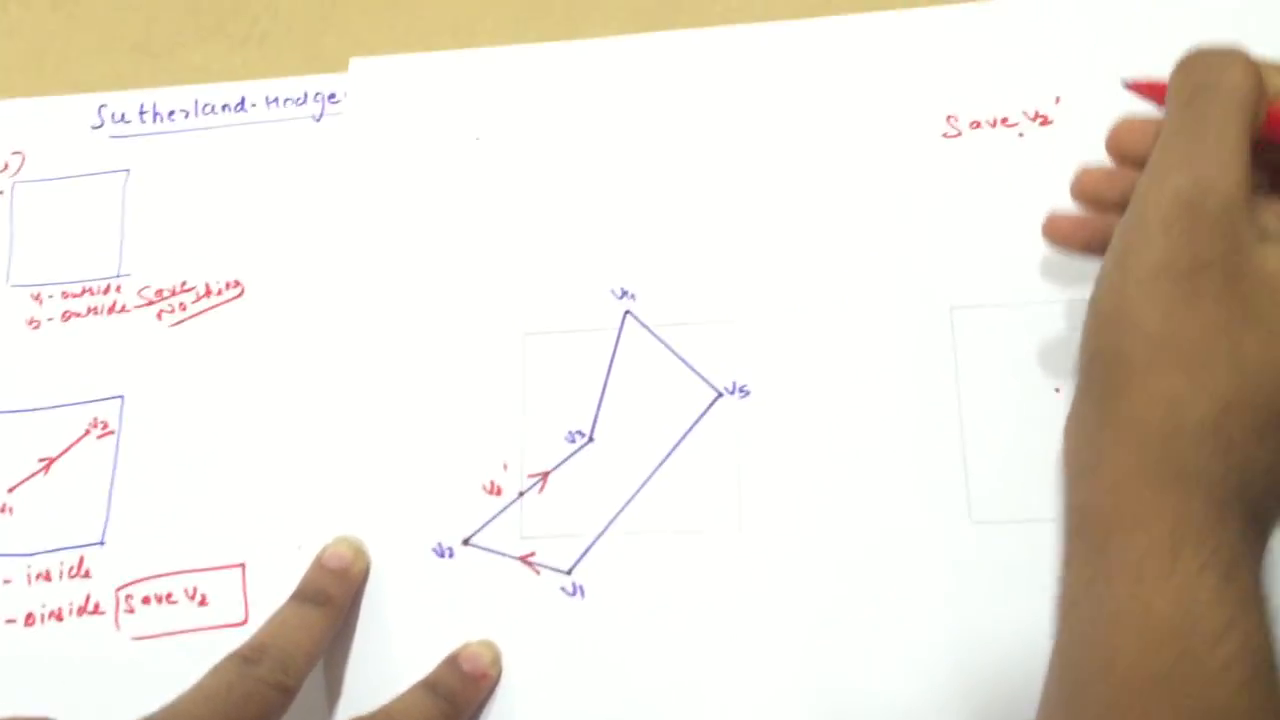 Sutherland-Hodge
v1 - outside
v2 - outside Save Nothing
v2
v1
- inside
- inside Save V2
V4
V5
V3
V2'
V2
V1
Save V2'